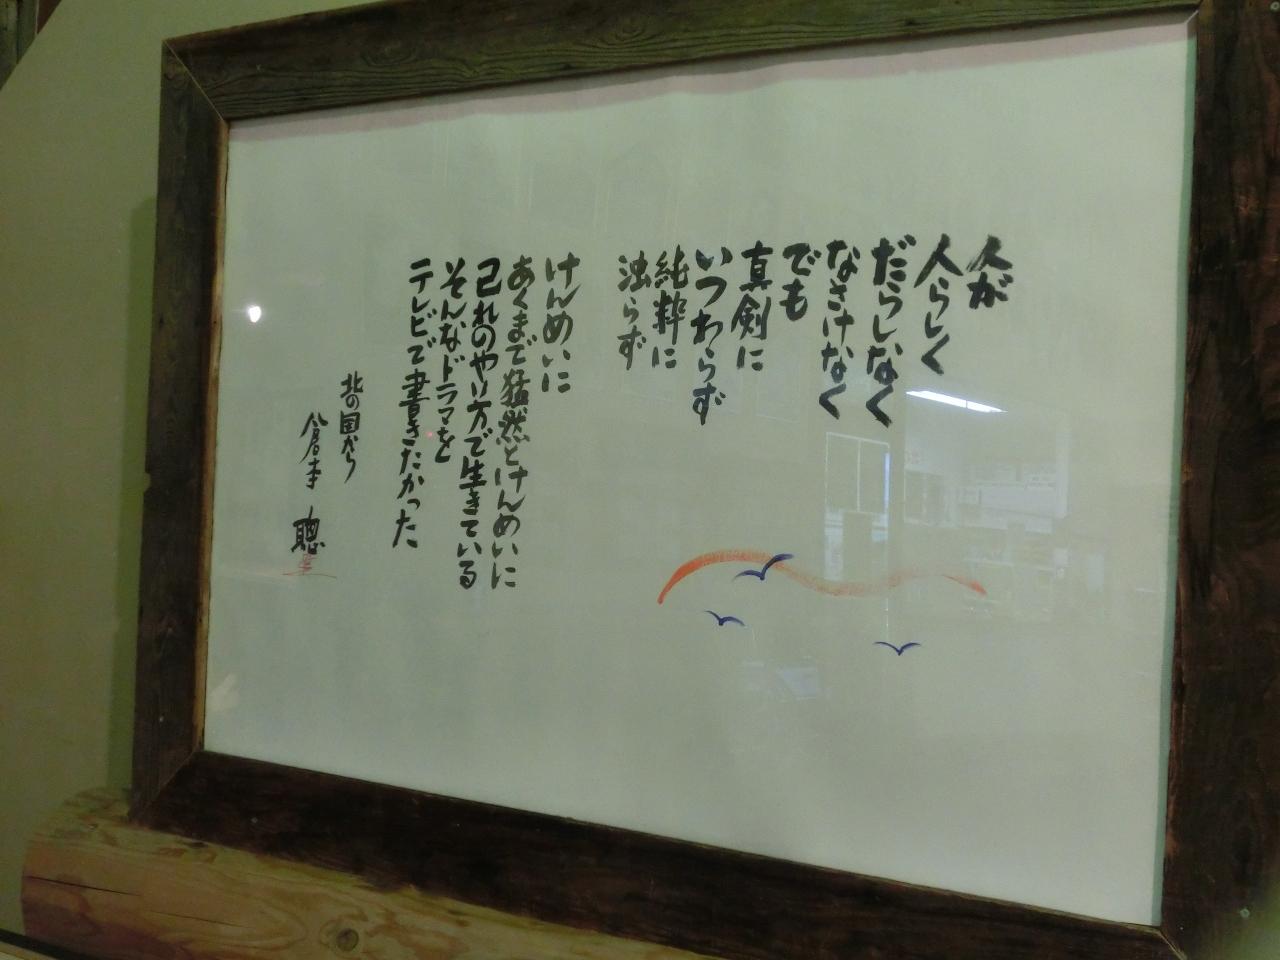 人が
人らしく
だらしなく
なさけなく
でも
真剣に
いつわらず
純粋に
濁らず
けんめいに
あくまで猛然とけんめいに
己れのやり方で生きている
そんなドラマを
テレビで書きたかった
北の国から
倉本 聰